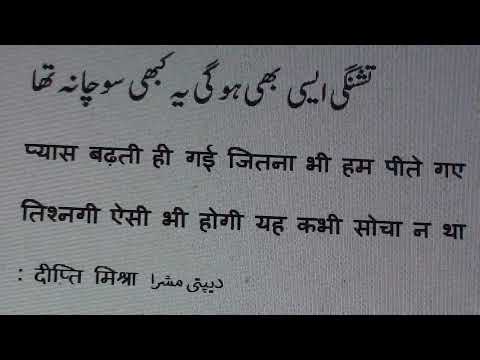 تشنگی ایسی بھی ہوگی یہ کبھی سوچا نہ تھا
प्यास बढ़ती ही गई जितना भी हम पीते गए
तिश्नगी ऐसी भी होगी यह कभी सोचा न था
: दीप्ति मिश्रा دیپتی مشرا